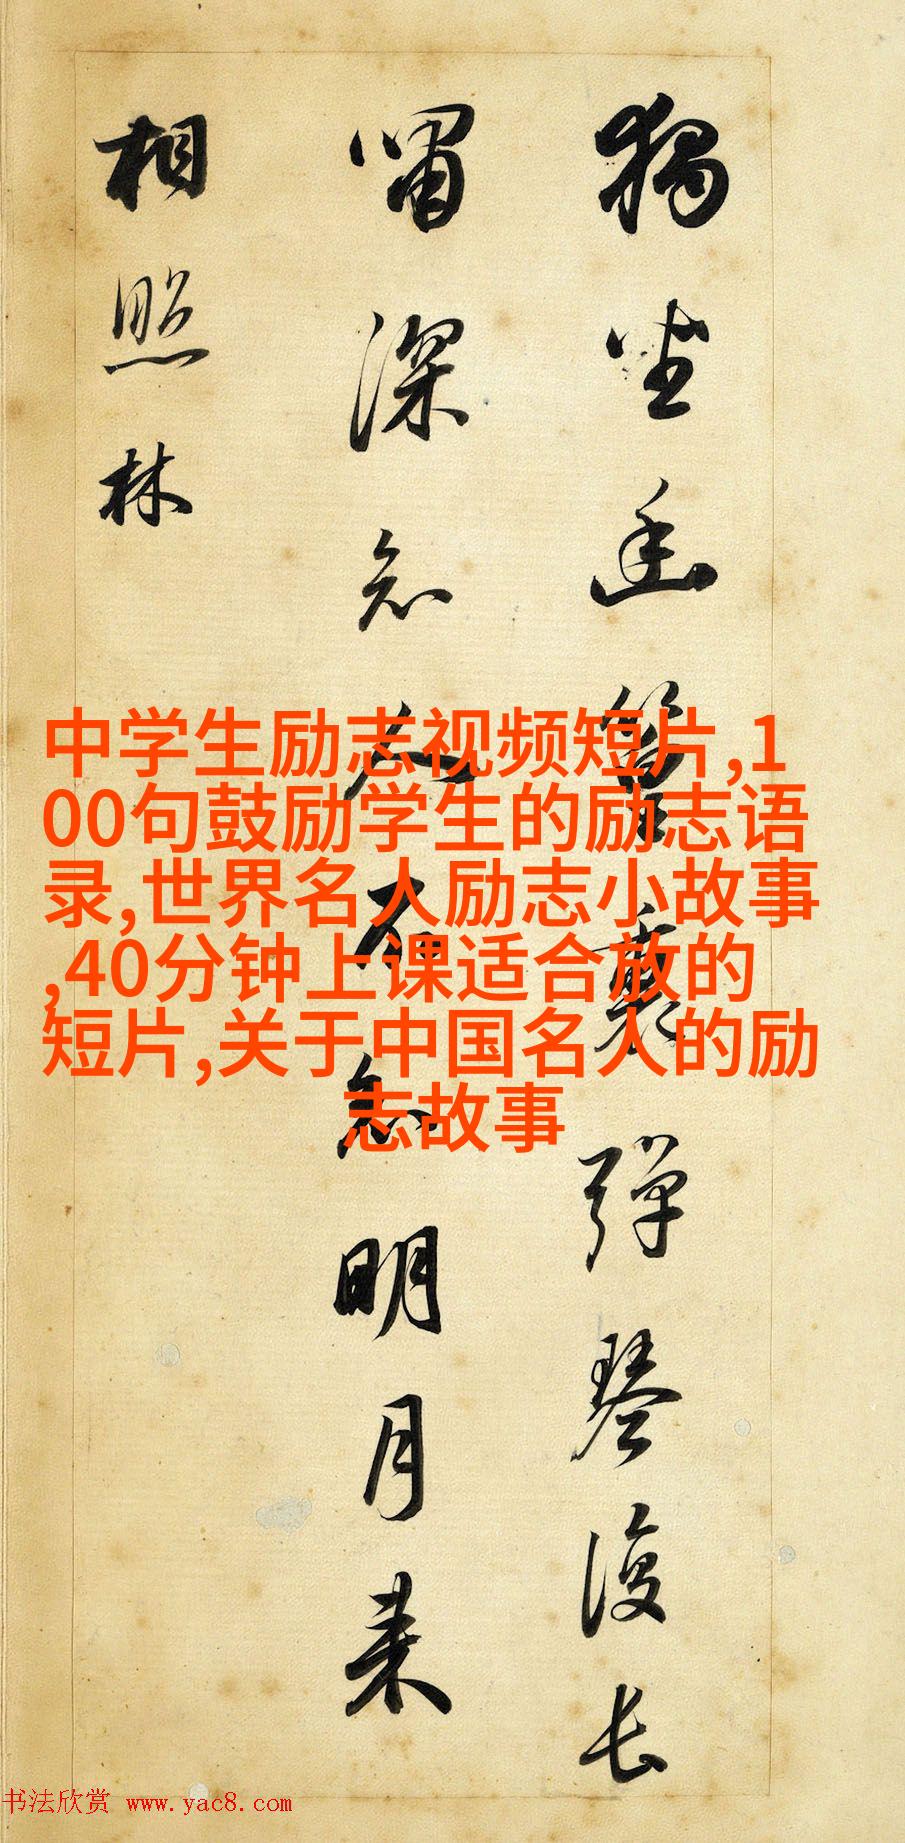 獨坐幽篁裏彈琴復長
嘯深知人不知明月来
相照林
中学生励志视频短片,1
00句鼓励学生的励志语
录,世界名人励志小故事
,40分钟上课适合放的
短片,关于中国名人的励
志故事
书法欣赏 www.yac8.com